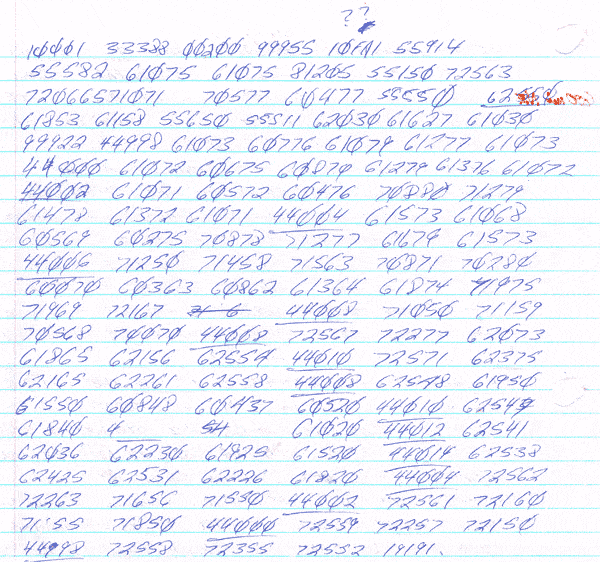 ??
10001 33388 00200 99955 10FA1 55914
55582 61075 61075 81205 55150 72563
72066571071 70577 60477 55550
61853 61158 55650 55511 62030 61627 61030
99922 44998 61073 60776 61079 61277 61073
44000 61072 60675 60870 61279 61376 61072
44002 61071 60572 60476 70880 71279
61478 61372 61071 44004 61573 61068
60569 60275 70878 71277 61679 61573
44006 71250 71458 71563 70871 70280
60070 60363 60862 61364 61874 71975
71969 72167 44008 71050 71159
70568 70070 44008 72567 72277 62073
61865 62156 62554 44010 72571 62375
62165 62261 62558 44008 62548 61950
61550 60848 60437 60520 44010 62547
61840 4 61020 44012 62541
62036 62230 61925 61520 44014 62538
62425 62531 62226 61820 44004 72562
72263 71656 71550 44002 72561 72160
71855 71850 44000 72559 72257 72150
44998 72558 72355 72552 19191.